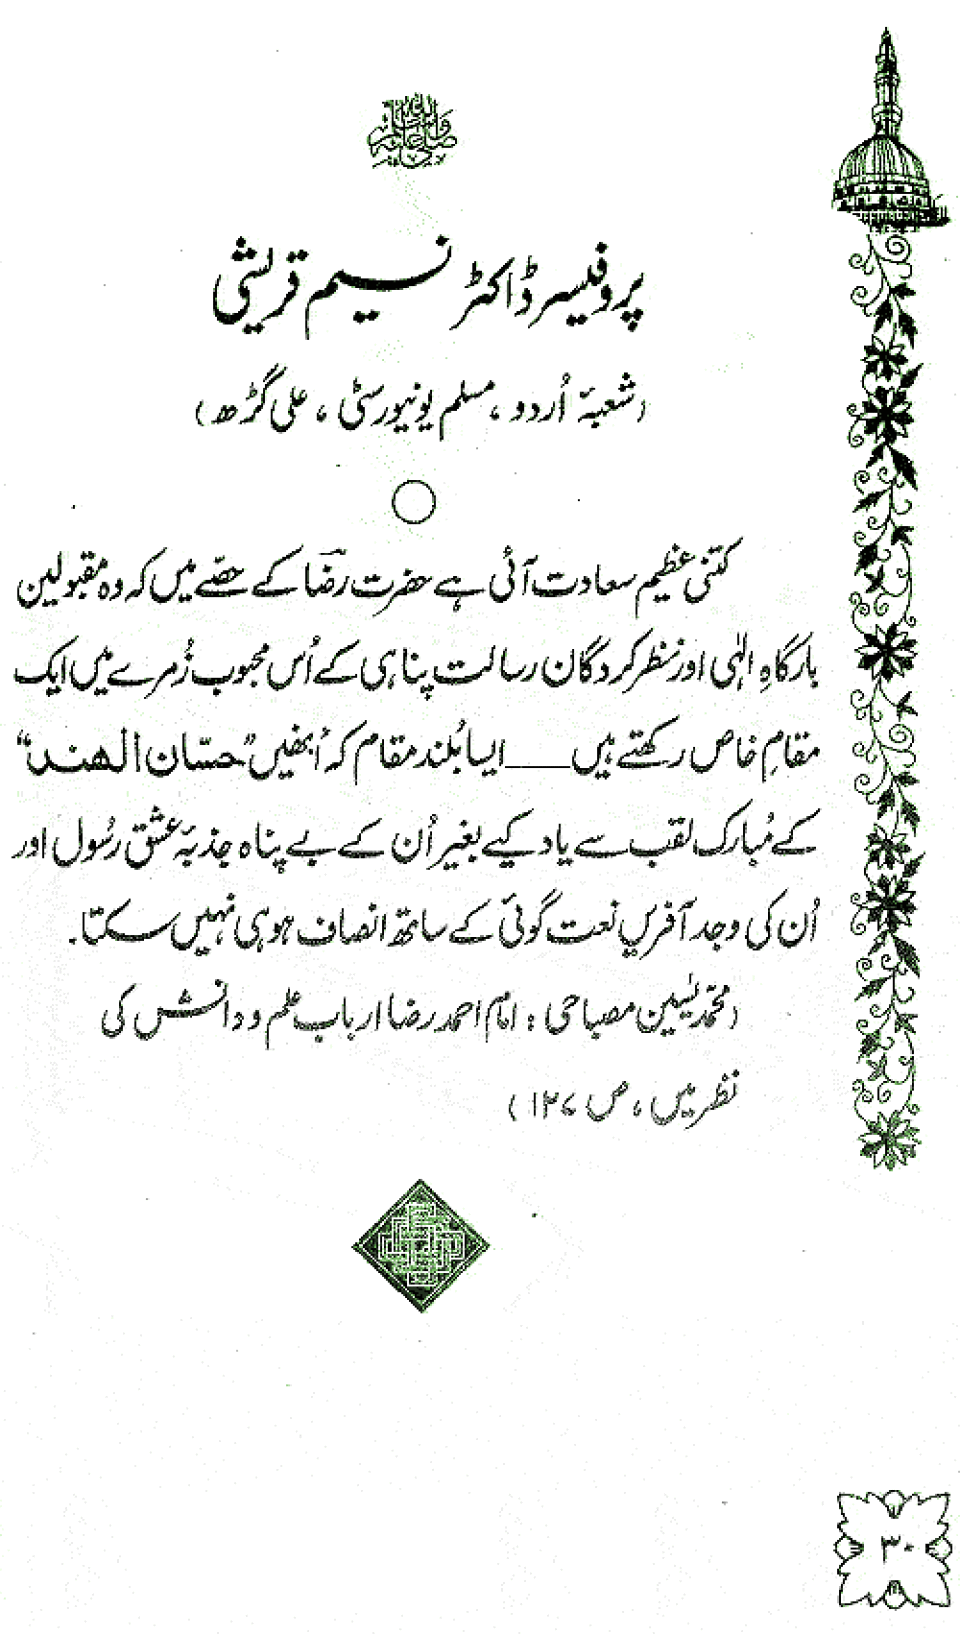 صلی اللہ علیہ وسلم
پروفیسر ڈاکٹر نسیم قریشی
(شعبۂ اُردو، مسلم یونیورسٹی، علی گڑھ)
کتنی عظیم سعادت آئی ہے حضرت رضاؔ کے حصّے میں کہ وہ مقبولین
بارگاہِ الٰہی اور نظر کردگان رسالت پناہی کے اُس محبوب زُمرے میں ایک
مقامِ خاص رکھتے ہیں ـــــ ایسا بُلند مقام کہ اُنھیں ”حسّان الهند“
کے مُبارک لقب سے یاد کیے بغیر اُن کے بے پناہ جذبۂ عشق رسُول اور
اُن کی وجد آفریں نعت گوئی کے ساتھ انصاف ہو ہی نہیں سکتا۔
(محمّد یٰسین مصباحی: امام احمد رضا ارباب علم و دانش کی
نظر میں، ص ۱۲۷)
۳۰